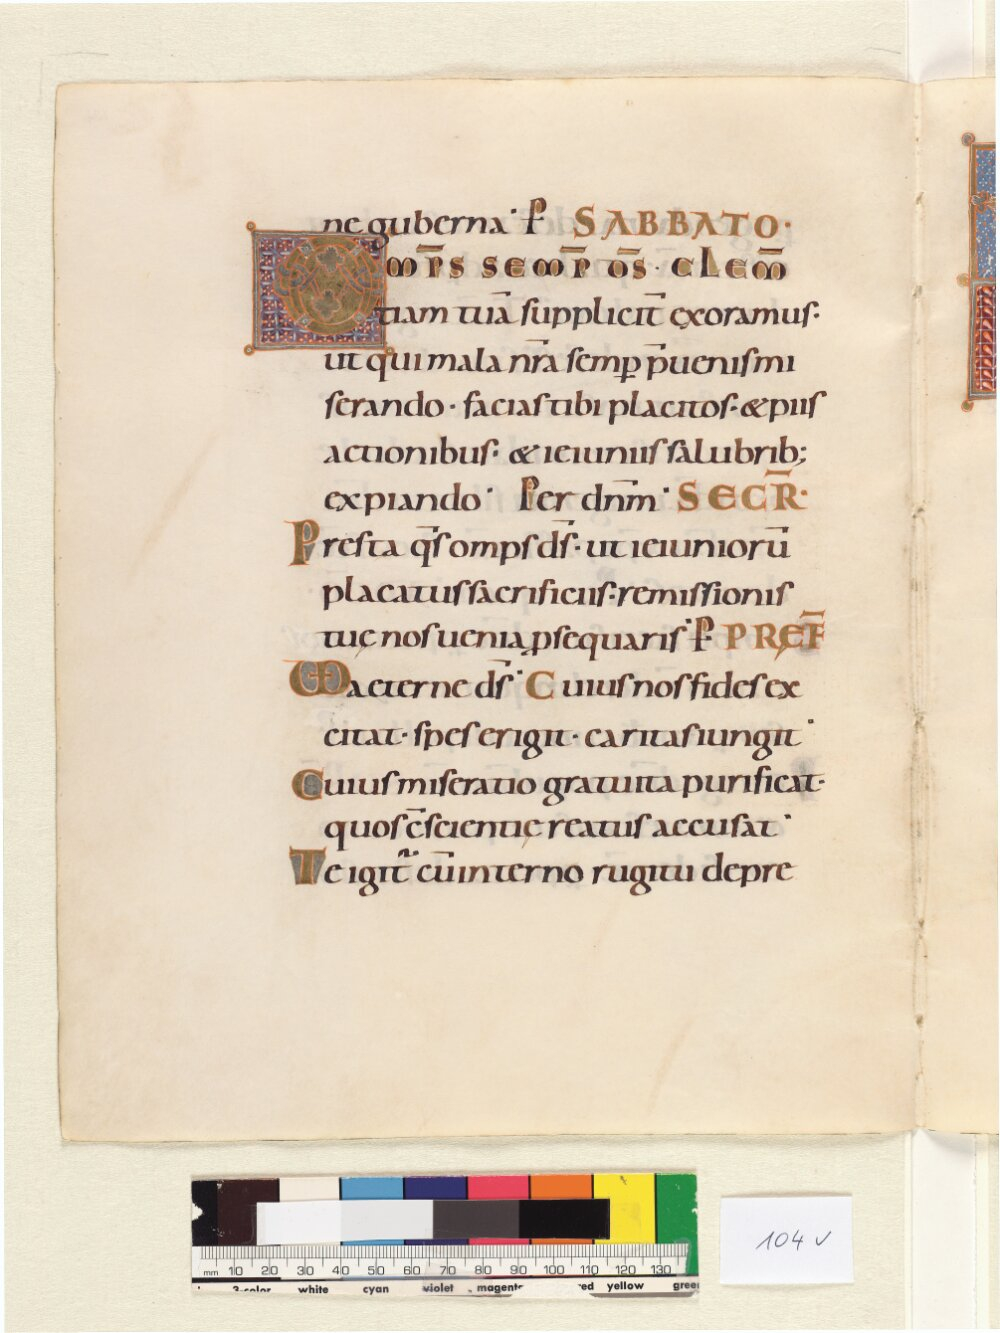 ne guberna· P̲ SABBATO·
OMP̄S SEMP̄ D̄S· CLEM̄
tiam tuā supplicit̄ exoramus·
ut qui mala nr̄a semꝑ p̄uenis mi
serando· facias tibi placitos· & piis
actionibus· & ieiuniis salubrib;
expiando· Per dn̄m· SECR̄·
Presta q̄s omps d̄s· ut ieiuniorū
placatus sacrificiis· remissionis
tuę nos uenia ꝓsequaris· P̲ PREF̄
VD aeterne d̄s· Cuius nos fides ex
citat· spes erigit· caritas iungit·
Cuius miseratio gratuita purificat·
quos c̄scientię reatus accusat·
Te igit̄ cū interno rugitu depre
104 v
mm 10 20 30 40 50 60 70 80 90 100 110 120 130
3-color white cyan violet magenta red yellow green